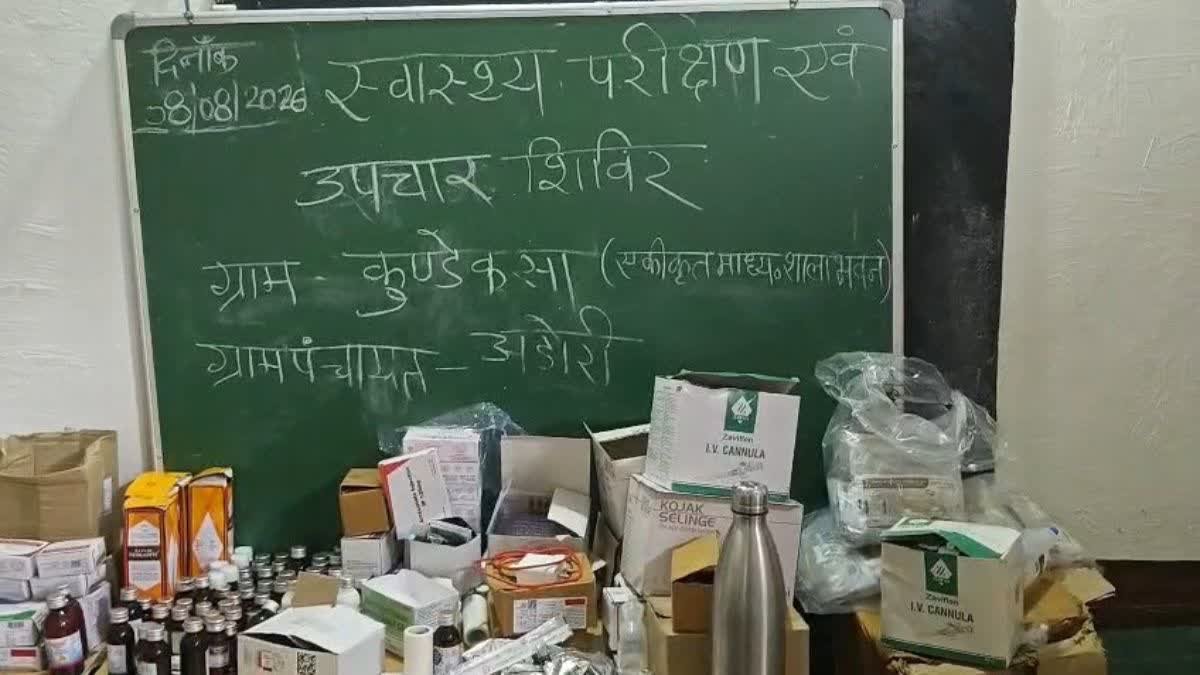 दिनाँक
08/08/2026
स्वास्थ्य परीक्षण एवं
उपचार शिविर
ग्राम - कुण्डेकसा (एकीकृत माध्य. शाला भवन)
ग्राम पंचायत - अडोरी
Zaviflon
I.V. CANNULA
KOJAK
SELINGE
Zaviflon
I.V. CANNULA